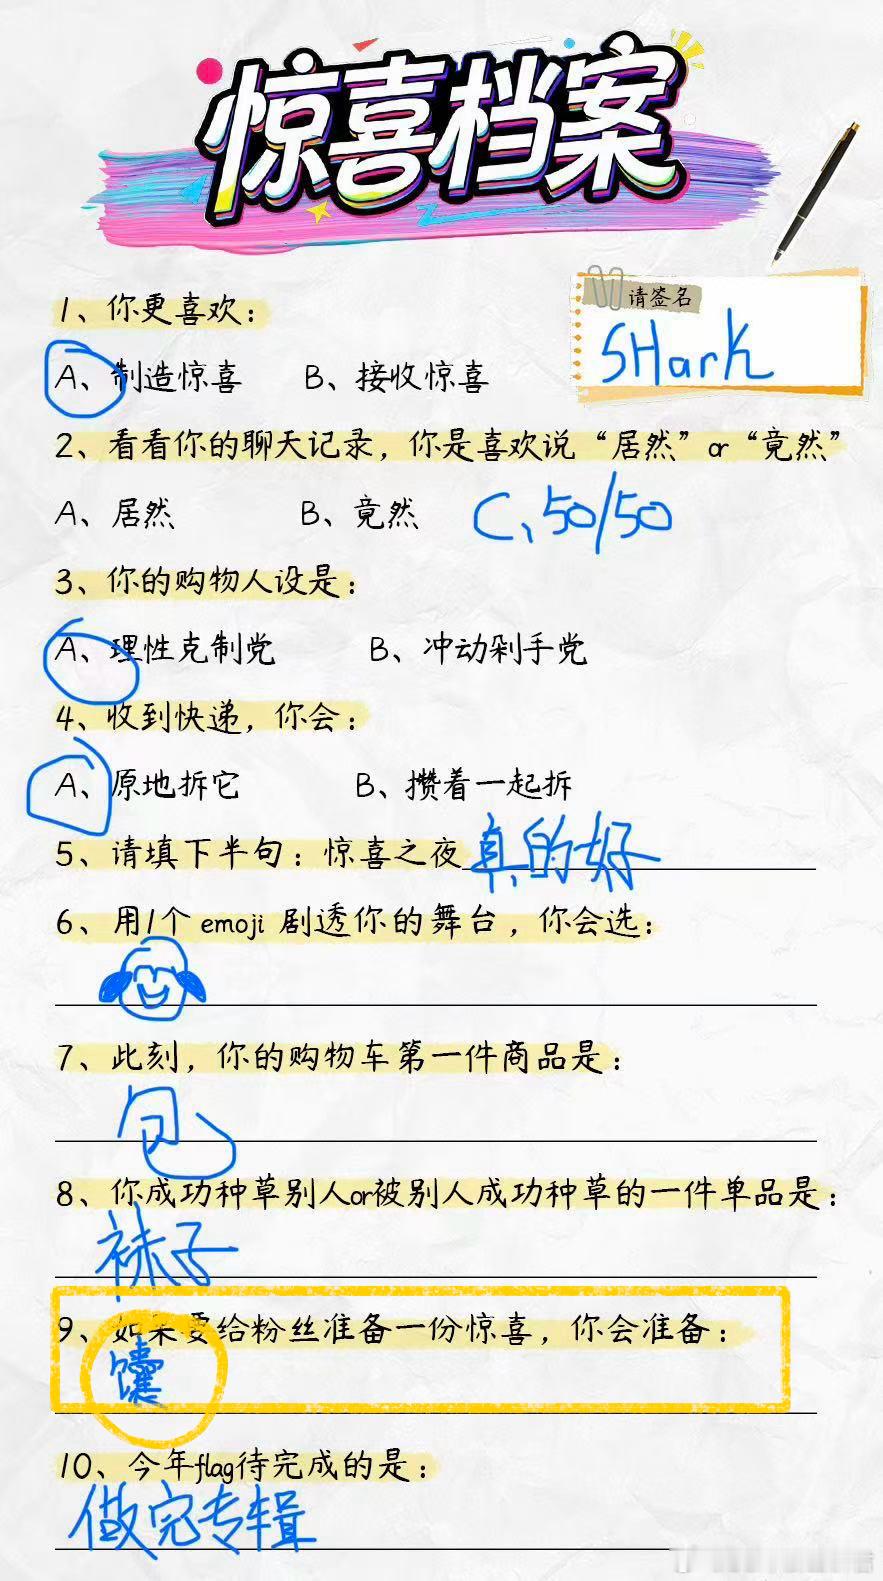 惊喜档案
请签名
SHark
1、你更喜欢：
A、制造惊喜 B、接收惊喜
2、看看你的聊天记录，你是喜欢说“居然”or“竟然”
A、居然 B、竟然 C、50/50
3、你的购物人设是：
A、理性克制党 B、冲动剁手党
4、收到快递，你会：
A、原地拆它 B、攒着一起拆
5、请填下半句：惊喜之夜真的好
6、用1个 emoji 剧透你的舞台，你会选：
7、此刻，你的购物车第一件商品是：
包
8、你成功种草别人or被别人成功种草的一件单品是：
袜子
9、如果要给粉丝准备一份惊喜，你会准备：
10、今年flag待完成的是：
做完专辑